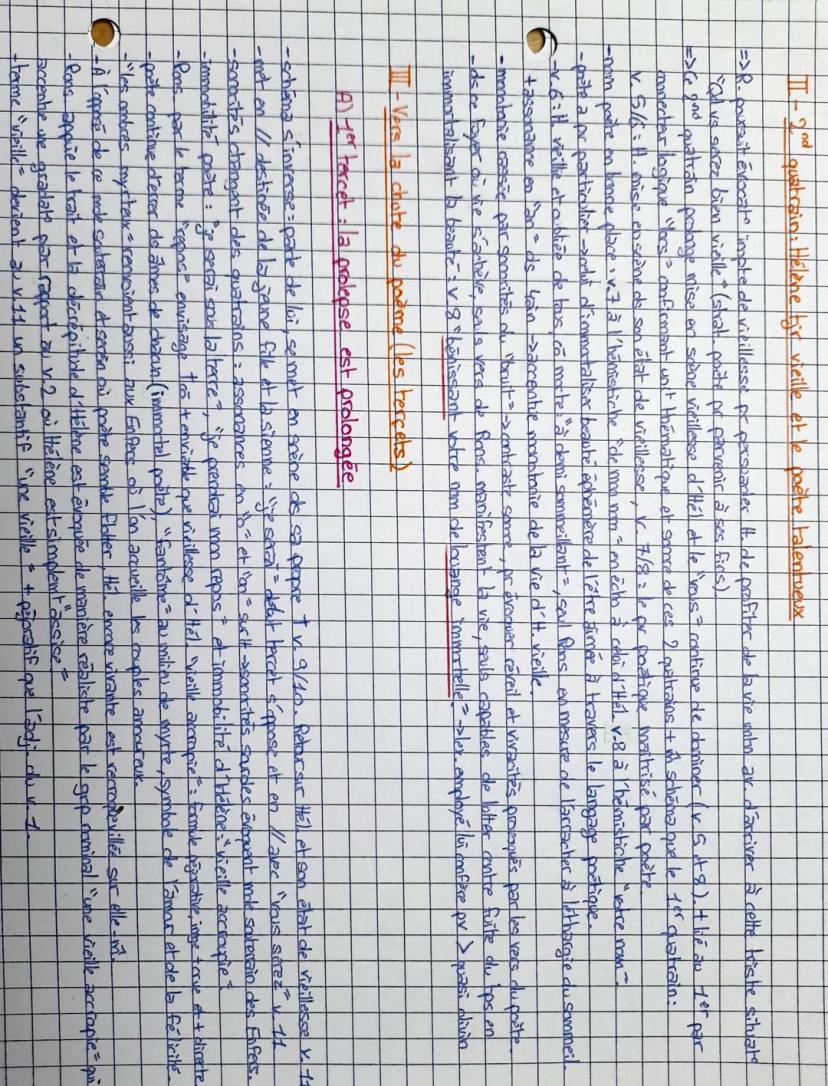 II - 2nd quatrain : Hélène tjr vieille et le poète talentueux
=> R. poursuit évocat° impste de vieillesse pr persuader H. de profiter de la vie mtn av. d'arriver à cette triste situat°
"Qd vs serez bien vieille" (strat. poète pr parvenir à ses fins)
=> Ce 2nd quatrain prolonge mise en scène vieillesse d'Hél et le "vous" continue de dominer (v. 5 et 8). + lié au 1er par
connecteur logique "lors" confirmant unit thématique et sonore de ces 2 quatrains + m̂ schéma que le 1er quatrain :
v. 5/6 : H. mise en scène ds son état de vieillesse, v. 7/8 : le pv poétique maîtrisé par poète.
- nom poète en bonne place : v. 7 à l'hémistiche "de mon nom" en écho à celui d'Hél. v. 8 à l'hémistiche "votre nom".
- poète a pv particulier -> celui d'immortaliser beauté éphémère de l'être aimée à travers le langage poétique.
- v. 6 : H. vieille et oubliée de tous, co morte : "à demi sommeillant", seul Rons. en mesure de l'arracher à léthargie du sommeil.
+ assonance en "an" ds 4ain -> accentue monotonie de la vie d'H. vieille.
- monotonie cassée par sonorités du "bruit" -> contraste sonore, pr évoquer réveil et vivacités provoqués par les vers du poète.
- ds ce foyer où vie s'achève, seuls vers de Rons. manifestent la vie, seuls capables de lutter contre fuite du tps en
immortalisant la beauté : v. 8 "bénissant votre nom de louange immortelle" -> lex. employé lui confère pv > quasi divin
III - Vers la chute du poème (les tercets)
A) 1er tercet : la prolepse est prolongée
- schéma s'inverse : parle de lui, se met en scène ds sa propre † v. 9/10. Retour sur Hél. et son état de vieillesse v. 11
- met en // destinée de la jeune fille et la sienne : "je serai" début tercet s'oppose et en // avec "vous serez" v. 11
- sonorités changent des quatrains : assonances en "o" et "on" sur H -> sonorités sourdes évoquent mde souterrain des Enfers.
- immobilité poète : "je serai sous la terre", "je prendrai mon repos" et immobilité d'Hélène : "vieille accroupie"
- Rons. par le terme "repos" envisage † co + enviable que vieillesse d'Hél. "vieille accroupie" : formule péjorative, image + crue et + directe
- poète continue d'errer ds âmes de chacun (immortel poète), "fantôme" au milieu de myrte, symbole de l'amour et de la félicité.
- "les ombres myrteux" renvoient aussi aux Enfers où l'on accueille les couples amoureux.
- À l'opposé de ce mde souterrain et serein où poète semble flotter, Hél. encore vivante est recroquevillée sur elle-m̂.
- Rons. appuie le trait et la décrépitude d'Hélène est évoquée de manière réaliste par le grp nominal "une vieille accroupie" qui
accentue une gradat° par rapport au v. 2 où Hélène est simplemt "assise"
- terme "vieille" devient au v. 11 un substantif "une vieille" + péjoratif que l'adj. du v. 1.